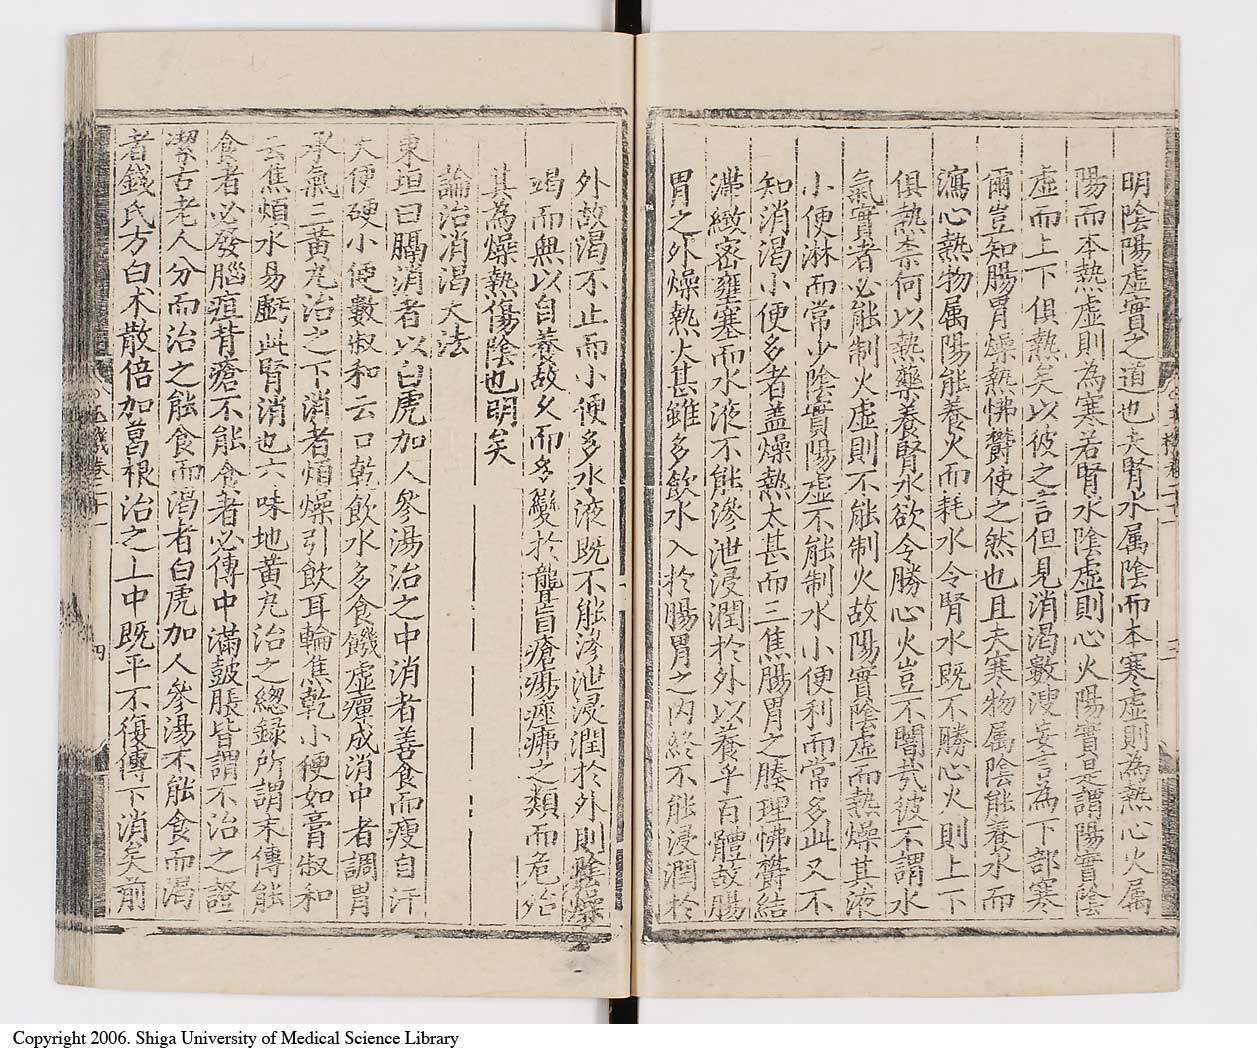 明陰陽虛實之道也夫腎水属陰而本寒虛則為熱心火属
陽而本熱虛則為寒若腎水陰虛則心火陽實是謂陽實陰
虛而上下俱熱矣以彼之言但見消渴數溲妄言為下部寒
爾豈知腸胃燥熱怫欝使之然也且夫寒物属陰能養水而
瀉心熱物属陽能養火而耗水今腎水既不勝心火則上下
俱熱柰何以熱藥養腎水欲令勝心火豈不闇㦲彼不謂水
氣實者必能制火虛則不能制火故陽實陰虛而熱燥其液
小便淋而常少陰實陽虛不能制水小便利而常多此又不
知消渴小便多者盖燥熱太甚而三焦腸胃之腠理怫欝結
滞緻密壅塞而水液不能滲泄浸潤於外以養乎百體故腸
胃之外燥熱太甚雖多飲水入於腸胃之内終不能浸潤於
外故渴不止而小便多水液既不能滲泄浸潤於外則陰燥
竭而無以自養故久而多變於聾盲瘡瘍痤疿之類而危殆
其為燥熱傷陰也明矣
論治消渴大法
東垣曰膈消者以白虎加人參湯治之中消者善食而瘦自汗
大便硬小便數叔和云口乾飲水多食饑虛癉成消中者調胃
承氣三黃丸治之下消者煩燥引飲耳輪焦乾小便如膏叔和
云焦煩水易虧此腎消也六味地黃丸治之緫録所謂末傳能
食者必發腦疽背瘡不能食者必傳中滿鼓脹皆謂不治之證
潔古老人分而治之能食而渴者白虎加人參湯不能食而渴
者錢氏方白朮散倍加葛根治之上中既平不復傳下消矣前